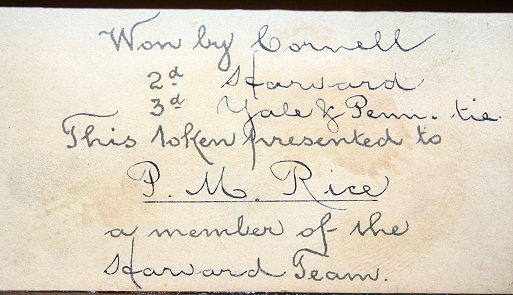 Won by Cornell
2d Harvard
3d Yale & Penn. tie
This token presented to
P. M. Rice
a member of the
Harvard Team.